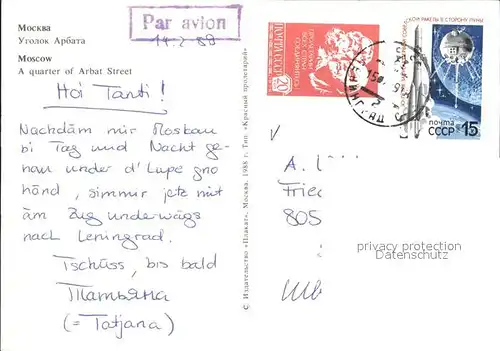 Москва
Уголок Арбата
Moscow
A quarter of Arbat Street
Par avion
14.2.89
Hoi Tanti!
Nachdäm mir Moskau
bi Tag und Nacht ge-
nau under d'Lupe gno
händ, simmer jetz mit
äm Zug underwägs
nach Leningrad.
Tschüss, bis bald
Татьяна
(= Tatjana)
© Издательство «Плакат». Москва. 1988 г. Тип. «Красный пролетарий»
ПОЧТА СССР
20
почта
СССР 15
A. L
Frie
805
privacy protection
Datenschutz